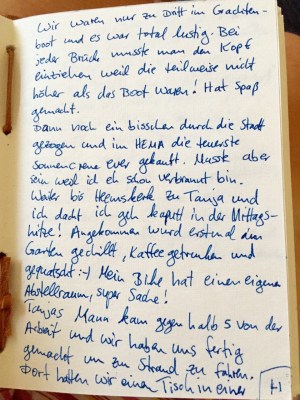 Wir waren nur zu Dritt im Grachten-
boot und es war total lustig. Bei
jeder Brücke musste man den Kopf
einziehen weil die teilweise nicht
höher als das Boot waren! Hat Spaß
gemacht.
Dann noch ein bisschen durch die Stadt
gezogen und im HEMA die teuerste
Sonnencreme ever gekauft. Musste aber
sein weil ich eh schon verbrannt bin.
Weiter bis Heemskerk zu Tanja und
ich dacht ich geh kaputt in der Mittags-
hitze! Angekommen wurd erstmal im
Garten gechillt, Kaffee getrunken und
gequatscht :-) Mein Bike hat einen eigenen
Abstellraum, super Sache!
Tanjas Mann kam gegen halb 5 von der
Arbeit und wir haben uns fertig
gemacht um zum Strand zu fahren.
Dort hatten wir einen Tisch in einer